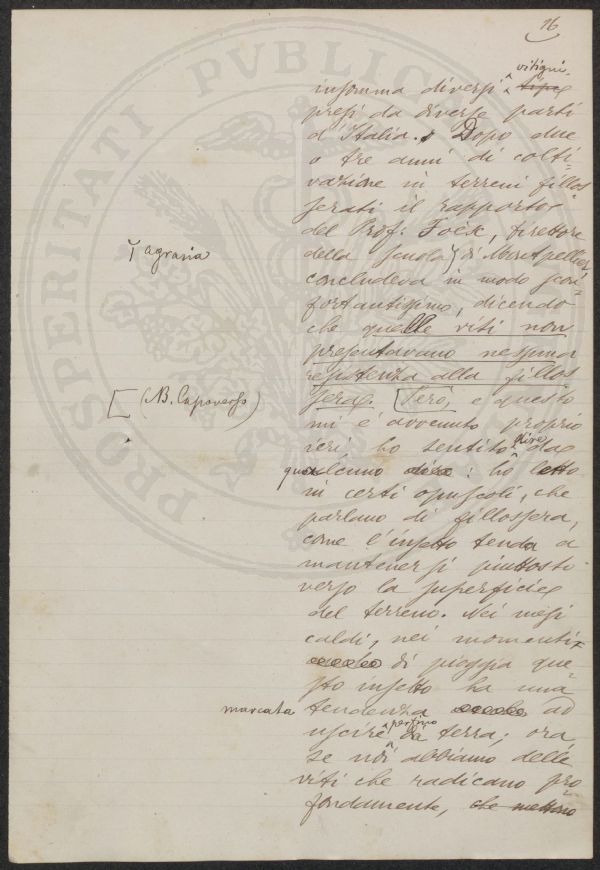 16
vitigni.
insomma diversi tipi
presi da diverse parti
d'Italia. Dopo due
o tre anni di colti=
vazione in terreni fillos
serati il rapporto
del Prof. Foëx, direttore
della scuola di Montpellier
┌ agraria
concludeva in modo scon=
fortantissimo, dicendo
che quelle viti non
presentavano nessuna
resistenza alla fillos
sera. [Però, e questo
[(N.B. Capoverso)
mi è avvenuto proprio
ieri ho sentito dire da
qualcuno : ho letto
in certi opuscoli, che
parlano di fillossera,
come l'insetto tenda a
mantenersi piuttosto
verso la superficie
del terreno. Nei mesi
caldi, nei momenti
di pioggia que=
sto insetto ha una
marcata tendenza ad
uscire perfino da terra; ora
se noi abbiamo delle
viti che radicano pro=
fondamente, che mettono
PROSPERITATI PUBLICAE